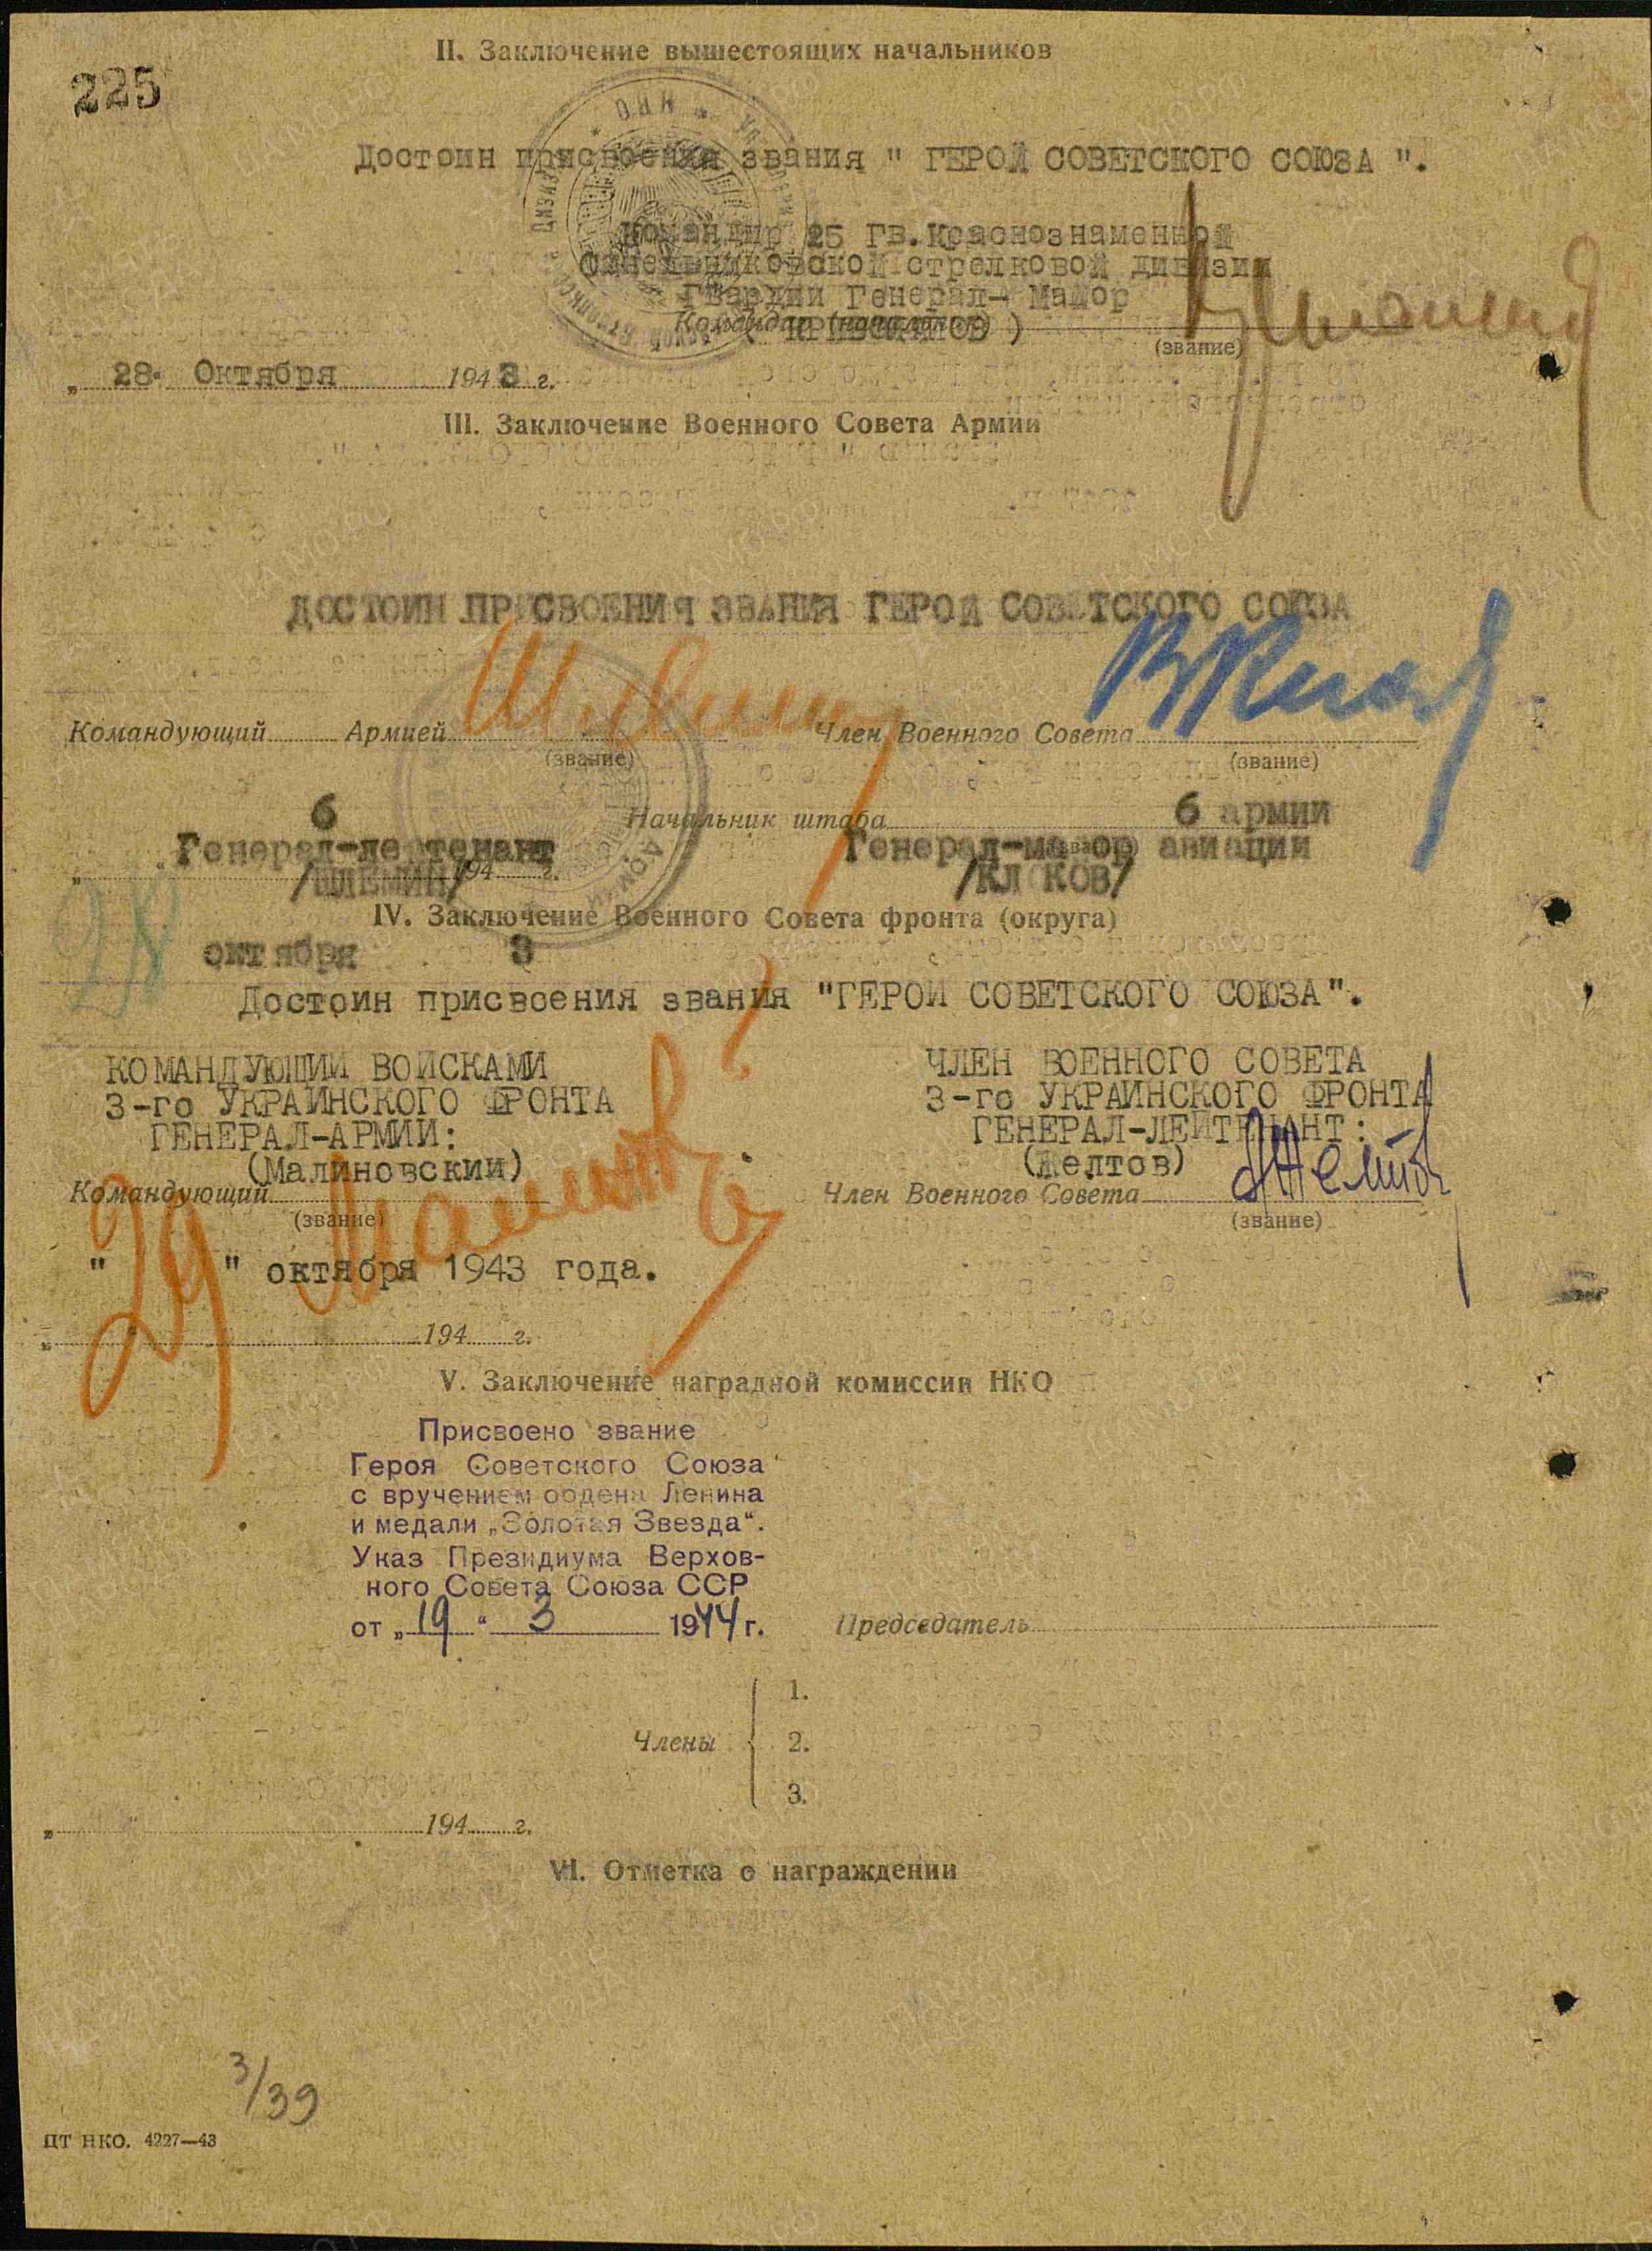 II. Заключение вышестоящих начальников
225
Достоин присвоения звания " ГЕРОЙ СОВЕТСКОГО СОЮЗА ".
Командир 25 Гв.Краснознаменной
Синельниковской стрелковой дивизии
Гвардии Генерал- Майор
Командир (начальник)
(звание)
„ 28 “ Октября 1943 г.
III. Заключение Военного Совета Армии
ДОСТОИН ПРИСВОЕНИЯ ЗВАНИЯ ГЕРОЙ СОВЕТСКОГО СОЮЗА
Командующий Армией Член Военного Совета
(звание) (звание)
6 Начальник штаба 6 армии
Генерал-лейтенант Генерал-майор авиации
/ШЛЕМИН/ 194 г. /КЛОКОВ/
IV. Заключение Военного Совета фронта (округа)
28 октября 3
Достоин присвоения звания "ГЕРОЙ СОВЕТСКОГО СОЮЗА".
КОМАНДУЮЩИЙ ВОЙСКАМИ ЧЛЕН ВОЕННОГО СОВЕТА
3-го УКРАИНСКОГО ФРОНТА 3-го УКРАИНСКОГО ФРОНТА
ГЕНЕРАЛ-АРМИИ: ГЕНЕРАЛ-ЛЕЙТЕНАНТ:
(Малиновский) (Желтов)
Командующий Член Военного Совета
(звание) (звание)
" 29 " октября 1943 года.
„ “ 194 г.
V. Заключение наградной комиссии НКО
Присвоено звание
Героя Советского Союза
с вручением ордена Ленина
и медали „Золотая Звезда“.
Указ Президиума Верхов-
ного Совета Союза ССР
от „19“ 3 1944 г. Председатель
1.
Члены 2.
3.
„ “ 194 г.
VI. Отметка о награждении
3/39
ЦТ НКО. 4227—43